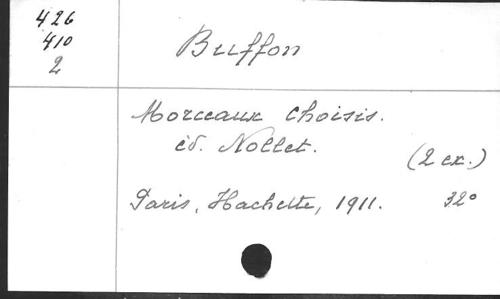 426
410
2
Buffon
Morceaux choisis.
éd. Nollet.
(2 ex.)
Paris, Hachette, 1911. 32°